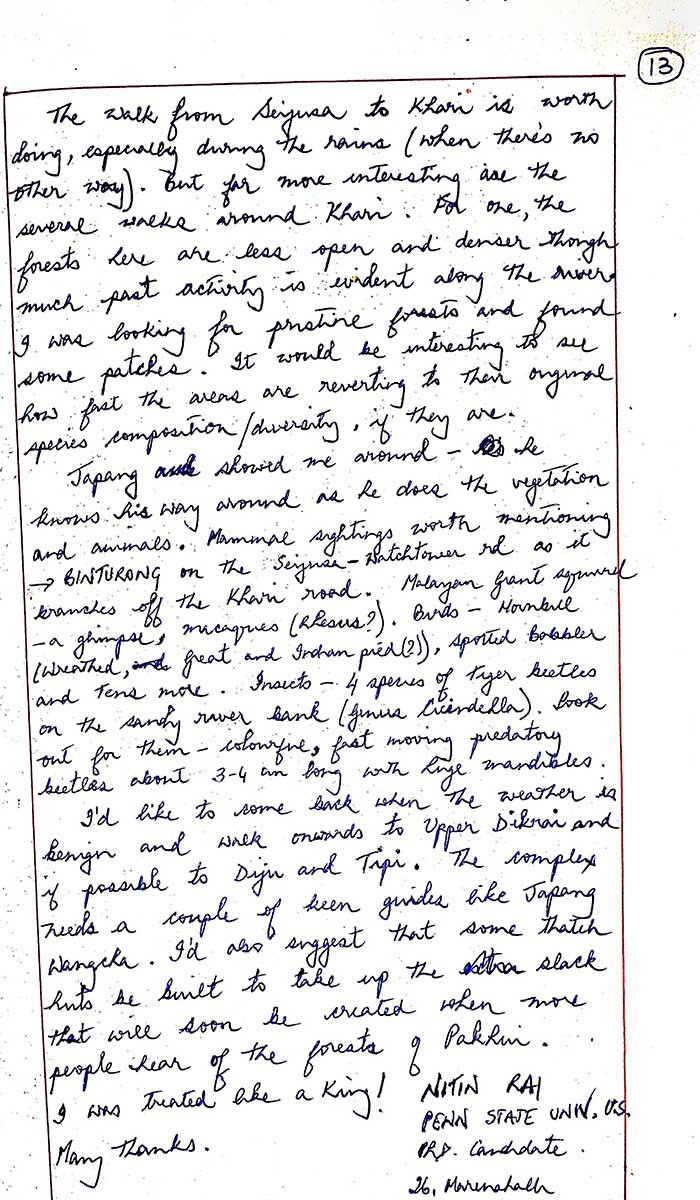 13
The walk from Seijusa to Khari is worth
doing, especially during the rains (when there's no
other way). But far more interesting are the
several walks around Khari. For one, the
forests here are less open and denser though
much past activity is evident along the river.
I was looking for pristine forests and found
some patches. It would be interesting to see
how fast the areas are reverting to their original
species composition/diversity, if they are.
Japang showed me around - he
knows his way around as he does the vegetation
and animals. Mammal sightings worth mentioning
→ BINTURONG on the Seijusa-Watchtower rd as it
branches off the Khari road. Malayan giant squirrel
- a glimpse, macaques (Rhesus?). Birds - Hornbill
(Wreathed, Great and Indian pied(?)), spotted Babbler
and tens more. Insects - 4 species of tiger beetles
on the sandy river bank (genus Cicindella). Look
out for them - colourful, fast moving predatory
beetles about 3-4 cm long with huge mandibles.
I'd like to come back when the weather is
benign and walk onwards to Upper Dikrai and
if possible to Diju and Tipi. The complex
needs a couple of keen guides like Japang
Wangcha. I'd also suggest that some thatch
huts be built to take up the slack
that will soon be created when more
people hear of the forests of Pakhui.
I was treated like a King!
Many thanks.
NITIN RAI
PENN STATE UNIV. U.S.
PhD. Candidate.
26, Marenahalli